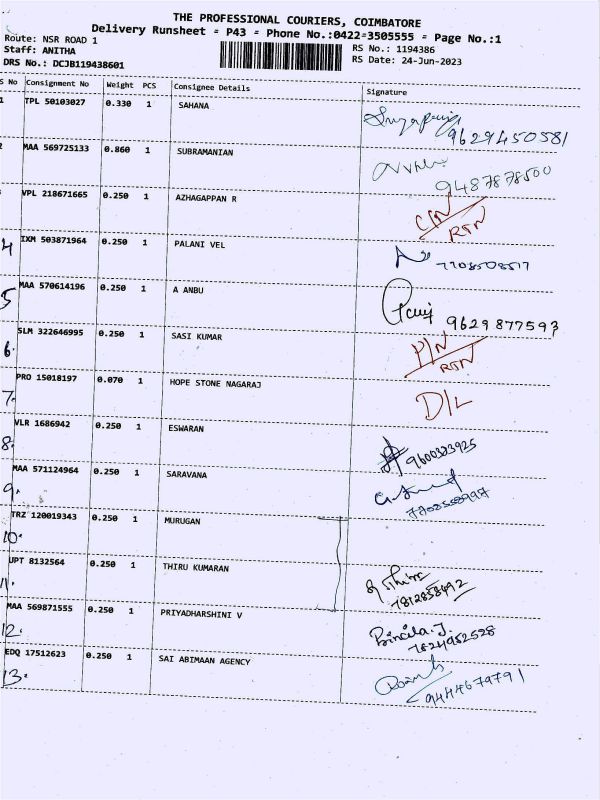 THE PROFESSIONAL COURIERS, COIMBATORE
Delivery Runsheet = P43 = Phone No.:0422=3505555 = Page No.:1
Route: NSR ROAD 1
RS No.: 1194386
Staff: ANITHA
RS Date: 24-Jun-2023
DRS No.: DCJB119438601
S No Consignment No Weight PCS Consignee Details Signature
1 TPL 50103027 0.330 1 SAHANA
9629450581
2 MAA 569725133 0.860 1 SUBRAMANIAN
9487878500
3 VPL 218671665 0.250 1 AZHAGAPPAN R C/N
RTN
4 IXM 503871964 0.250 1 PALANI VEL
7708508517
5 MAA 570614196 0.250 1 A ANBU
9629877593
6. SLM 322646995 0.250 1 SASI KUMAR P/N
RTN
7. PRO 15018197 0.070 1 HOPE STONE NAGARAJ D/L
8. VLR 1686942 0.250 1 ESWARAN 9600323925
9. MAA 571124964 0.250 1 SARAVANA
10. TRZ 120019343 0.250 1 MURUGAN
11. UPT 8132564 0.250 1 THIRU KUMARAN
12. MAA 569871555 0.250 1 PRIYADHARSHINI V Bincila.J.
7824982528
13. EDQ 17512623 0.250 1 SAI ABIMAAN AGENCY
9444679791